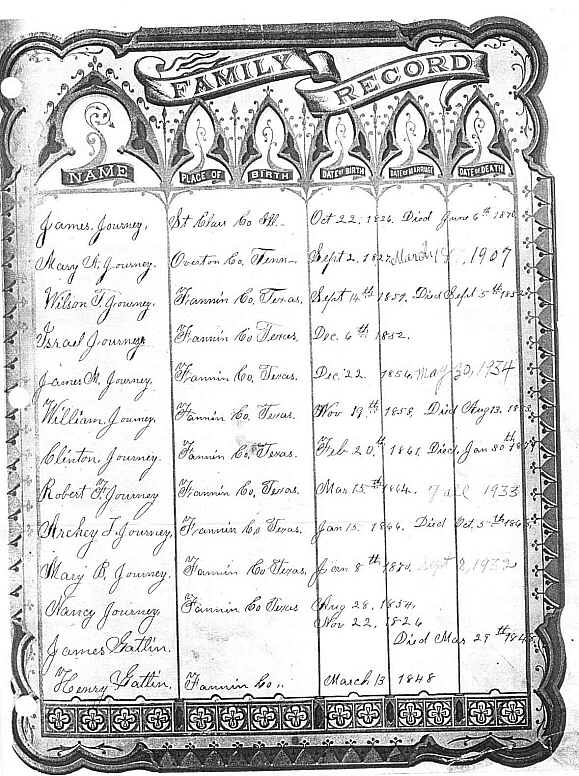 FAMILY RECORD
NAME PLACE OF BIRTH DATE OF BIRTH DATE OF MARRIAGE DATE OF DEATH
James Journey, St Clair Co Ill. Oct 22, 1826. Died June 6th
Mary A. Journey. Overton Co, Tenn Sept 2, 1827 March 1907
Wilson T. Journey. Fannin Co, Texas. Sept 14th Died Sept 5th
Israel Journey Fannin Co Texas Dec. 6th 1852.
James M. Journey. Fannin Co, Texas. Dec. 22 1856, May 30, 1934
William Journey. Fannin Co. Texas. Nov 19th 1858, Died Aug 13,
Clinton Journey. Fannin Co, Texas. Feb 20th 1861, Died Jan 30th
Robert F Journey Fannin Co, Texas. Mar 15th 1864. Fall 1933
Archey T. Journey, Fannin Co Texas. Jan 15. 1866. Died Oct. 5th
Mary B. Journey. Fannin Co Texas. Jan 8th 1870. Sept 2, 1932
Nancy Journey Fannin Co Texas Aug 28, 1854.
Nov 22, 1826
James Gatlin. Died Mar 29th 1848.
Henry Gatlin, Fannin Co,, March 13 1848